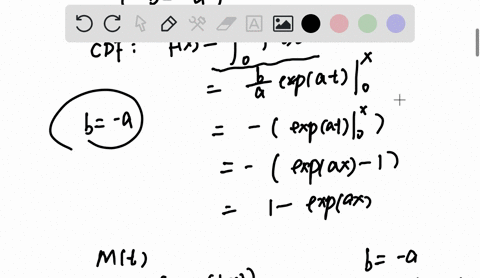 b = -a
CDF: F(x) =
= b/a exp(at) |₀ˣ
b = -a
= - ( exp(at) |₀ˣ )
= - ( exp(ax) - 1 )
= 1 - exp(ax)
M(t)
b = -a